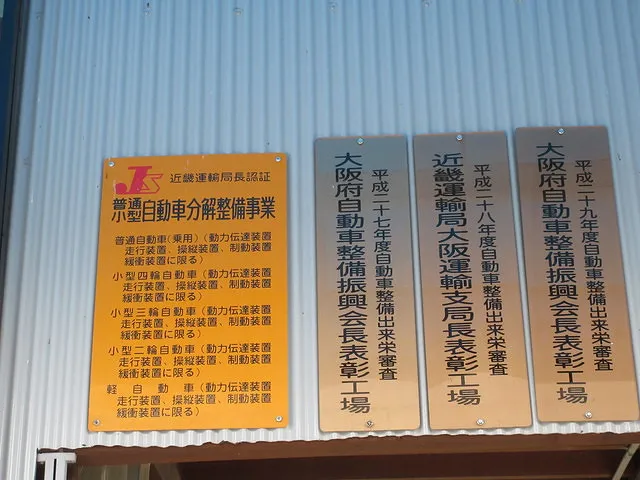 JS 近畿運輸局長認証
普通
小型 自動車分解整備事業
普通自動車(乗用)(動力伝達装置
走行装置、操縦装置、制動装置
緩衝装置に限る)
小型四輪自動車(動力伝達装置
走行装置、操縦装置、制動装置
緩衝装置に限る)
小型三輪自動車(動力伝達装置
走行装置、操縦装置、制動装置
緩衝装置に限る)
小型二輪自動車(動力伝達装置
走行装置、操縦装置、制動装置
緩衝装置に限る)
軽自動車(動力伝達装置
走行装置、操縦装置、制動装置
緩衝装置に限る)
平成二十七年度自動車整備出来栄審査
大阪府自動車整備振興会長表彰工場
平成二十八年度自動車整備出来栄審査
近畿運輸局大阪運輸支局長表彰工場
平成二十九年度自動車整備出来栄審査
大阪府自動車整備振興会長表彰工場